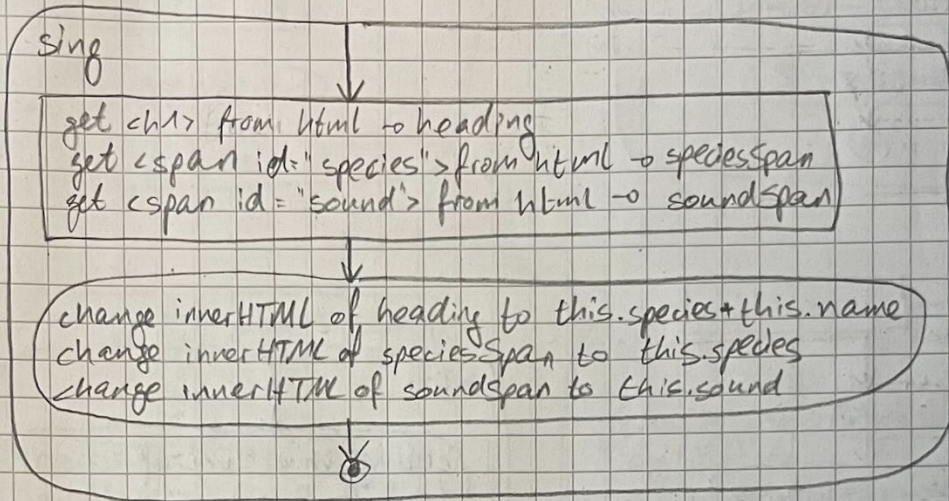 sing
get <h1> from html → heading
get <span id="species"> from html → speciesSpan
get <span id="sound"> from html → soundSpan
change innerHTML of heading to this.species+this.name
change innerHTML of speciesSpan to this.species
change innerHTML of soundspan to this.sound